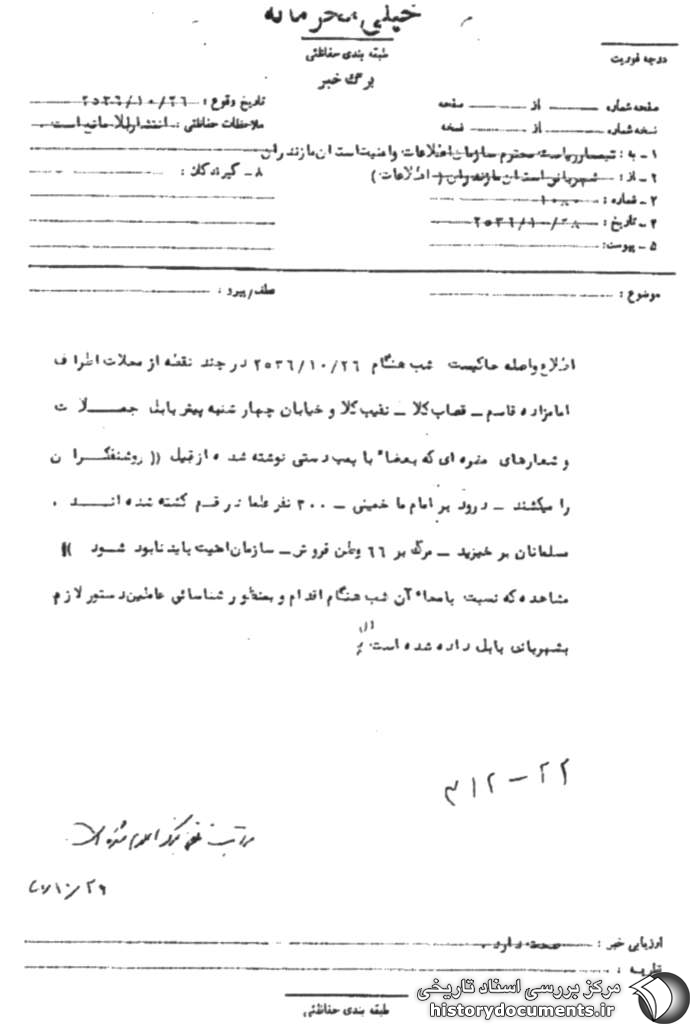 خیلی محرمانه
طبقه بندی حفاظتی
درجه فوریت
برگ خبر
صفحه شماره از صفحه
تاریخ وقوع : ۲۵۳۶/۱۰/۲۶
نسخه شماره از نسخه
ملاحظات حفاظتی : انتشار بلامانع است .
۱ - به : تیمسار ریاست محترم سازمان اطلاعات و امنیت استان مازندران
۲ - از : شهربانی استان مازندران ( اطلاعات )
۸ - گیرندگان :
۳ - شماره :
۴ - تاریخ : ۲۵۳۶/۱۰/۲۸
۵ - پیوست :
موضوع :
عطف/پیرو :
اطلاع واصله حاکیست شب هنگام ۲۵۳۶/۱۰/۲۶ در چند نقطه از محلات اطراف
امامزاده قاسم - قصاب کلا - نقیب کلا و خیابان چهار شنبه پیش بابل جملات
و شعارهای مضره ای که بعضاً با پمپ دستی نوشته شده از قبیل (( روشنفکران
را میکشند - درود بر امام ما خمینی - ۳۰۰ نفر طما در قم کشته شده اند .
مسلمانان بر خیزید - مرگ بر ۶۶ وطن فروش - سازمان امنیت باید نابود شود ))
مشاهده که نسبت بامحاء آن شب هنگام اقدام و بمنظور شناسائی عاملین دستور لازم
بشهربانی بابل داده شده است
۳۱۲ - ۲۲
مراتب تلفنی بمرکز اعلام شده است
۱۰/۲۹
ارزیابی خبر : صحت دارد .
نظریه :
طبقه بندی حفاظتی
مرکز بررسی اسناد تاریخی
historydocuments.ir